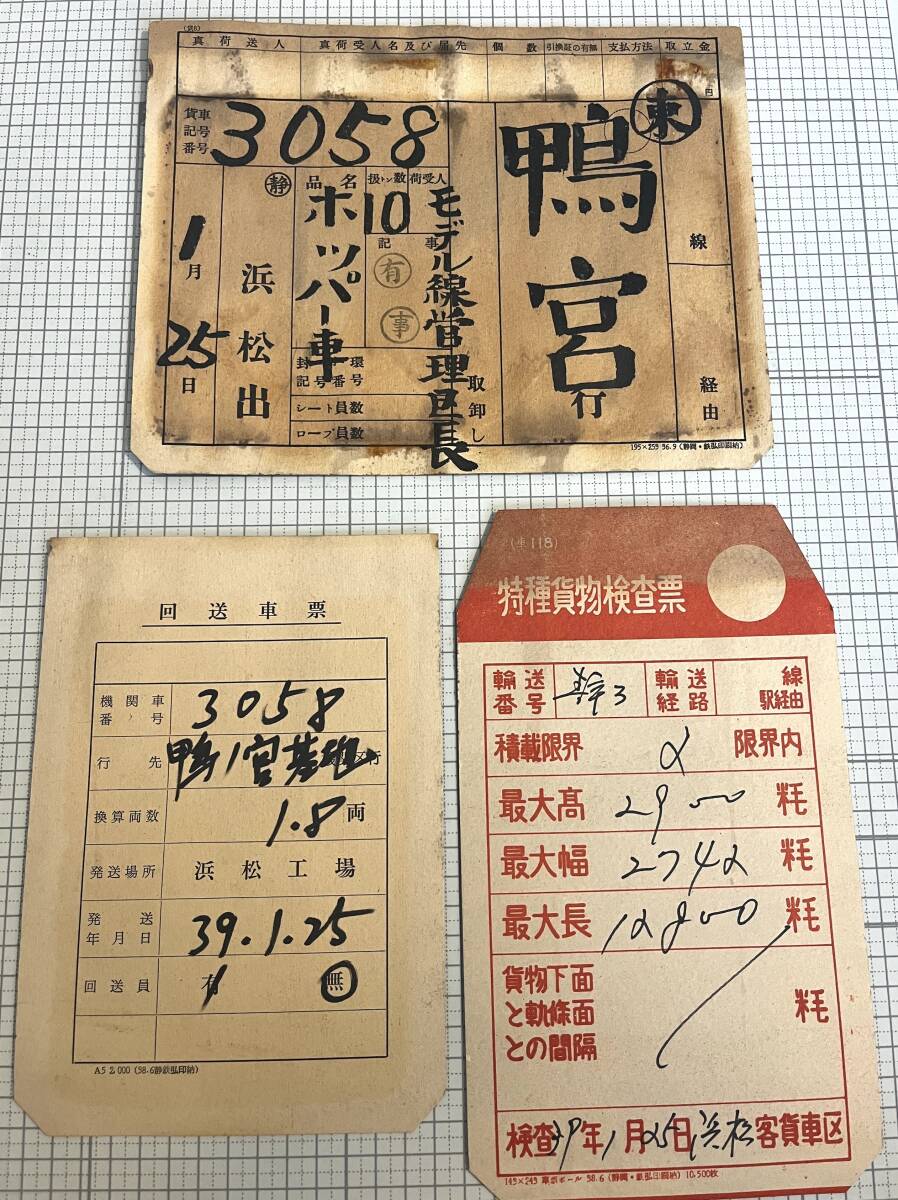 (貨6)
真荷送人 真荷受人名及び届先 個数 引換証の有無 支払方法 取立金
円
貨車記号番号 3058
東
鴨宮行
線
経由
静
品名 ホッパー車
扱トン数 10
荷受人 モデル線管理区長
記事
有
事
取卸し
1月25日
浜松出
封環記号番号
シート員数
ロープ員数
195×253 36.9 (静岡・鉄弘印刷納)
回送車票
機関車番号 3058
行先 鴨ノ宮基地 行
換算両数 1.8両
発送場所 浜松工場
発送年月日 39.1.25
回送員 有 無
A5 2,000 (38.6静鉄弘印納)
(車118)
特種貨物検査票
輸送番号 静3 輸送経路 線駅経由
積載限界 2 限界内
最大高 2900 粍
最大幅 2742 粍
最大長 12800 粍
貨物下面と軌條面との間隔 粍
検査39年1月25日浜松客貨車区
145×245 車票ボール 38.6 (静岡・鉄弘印刷納) 10,500枚